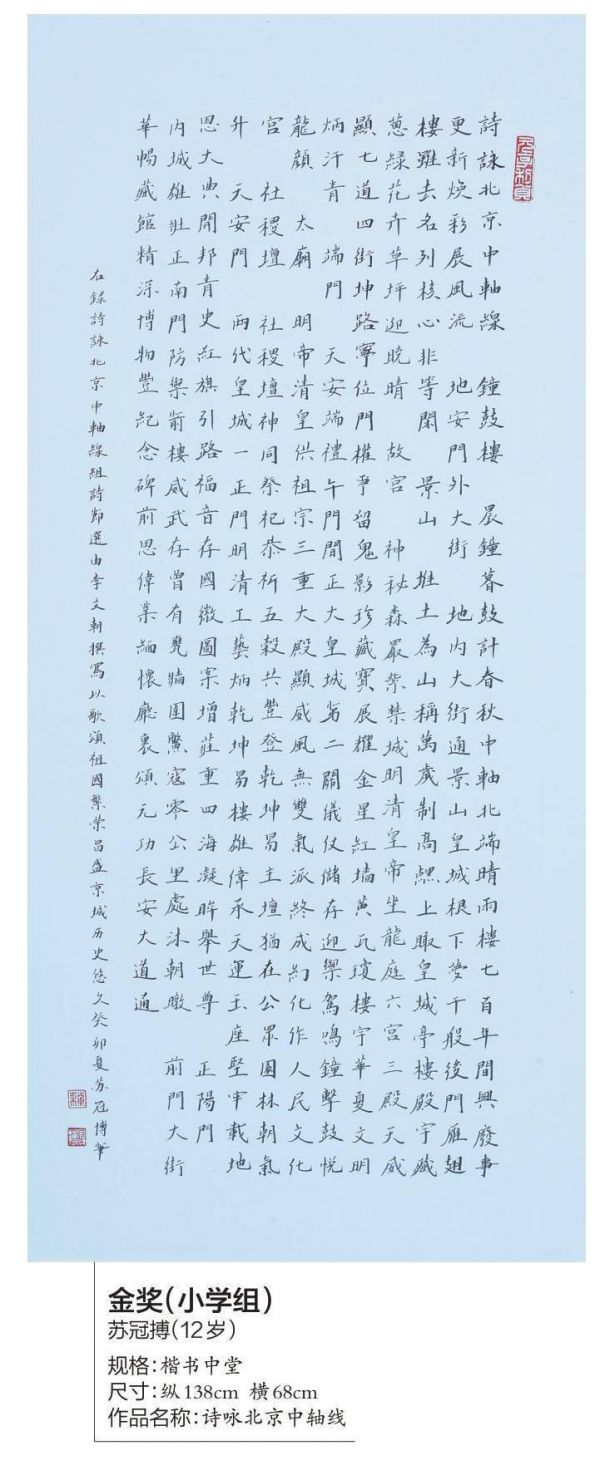 元亨利貞
詩詠北京中軸線 鐘鼓樓 晨鐘暮鼓計春秋中軸北端晴雨樓七百年間興廢事
更新煥彩展風流 地安門外大街 地內大街通景山皇城根下夢千般後門雁翅
樓雖去名列核心非等閑 景山 堆土為山稱萬歲制高騁上瞰皇城亭樓殿宇藏
蔥綠花卉草坪迎曉晴 故宮 神秘森嚴紫禁城明清皇帝坐龍庭六宮三殿天威
顯七道四街坤路寧位門權爭留鬼影珍藏寶展櫂金星紅墻黃瓦瓊樓宇華夏文明
炳汗青 端門 天安端禮午門間正大皇城第二關儀仗儲存迎禦駕鳴鐘擊鼓悅
龍顏 太廟 明帝清皇供祖宗三重大殿顯威風無雙氣派終成幻化作人民文化
宮 社稷壇 社稷壇神同祭祀恭祈五穀共豐登乾坤易主壇猶在公眾園林朝氣
升 天安門 兩代皇城一正門明清工藝炳乾坤易樓雄偉承天運玉座堅牢載地
恩大典開邦青史紅旗引路福音存國徽圖案增莊重四海凝眸舉世尊 正陽門
內城雄壯正南門防禦箭樓威武存曾有甕牆圍鱉寇零公里處沐朝暾 前門大街
華暢藏館精深博物豐紀念碑前思偉業緬懷廳裏頌元功長安大道通
右錄詩詠北京中軸線組詩節選由李文朝撰寫以歌頌祖國繁荣昌盛京城历史悠久癸卯夏苏冠博筆
金奖（小学组）
苏冠搏（12岁）
规格：楷书中堂
尺寸：纵138cm 横68cm
作品名称：诗咏北京中轴线